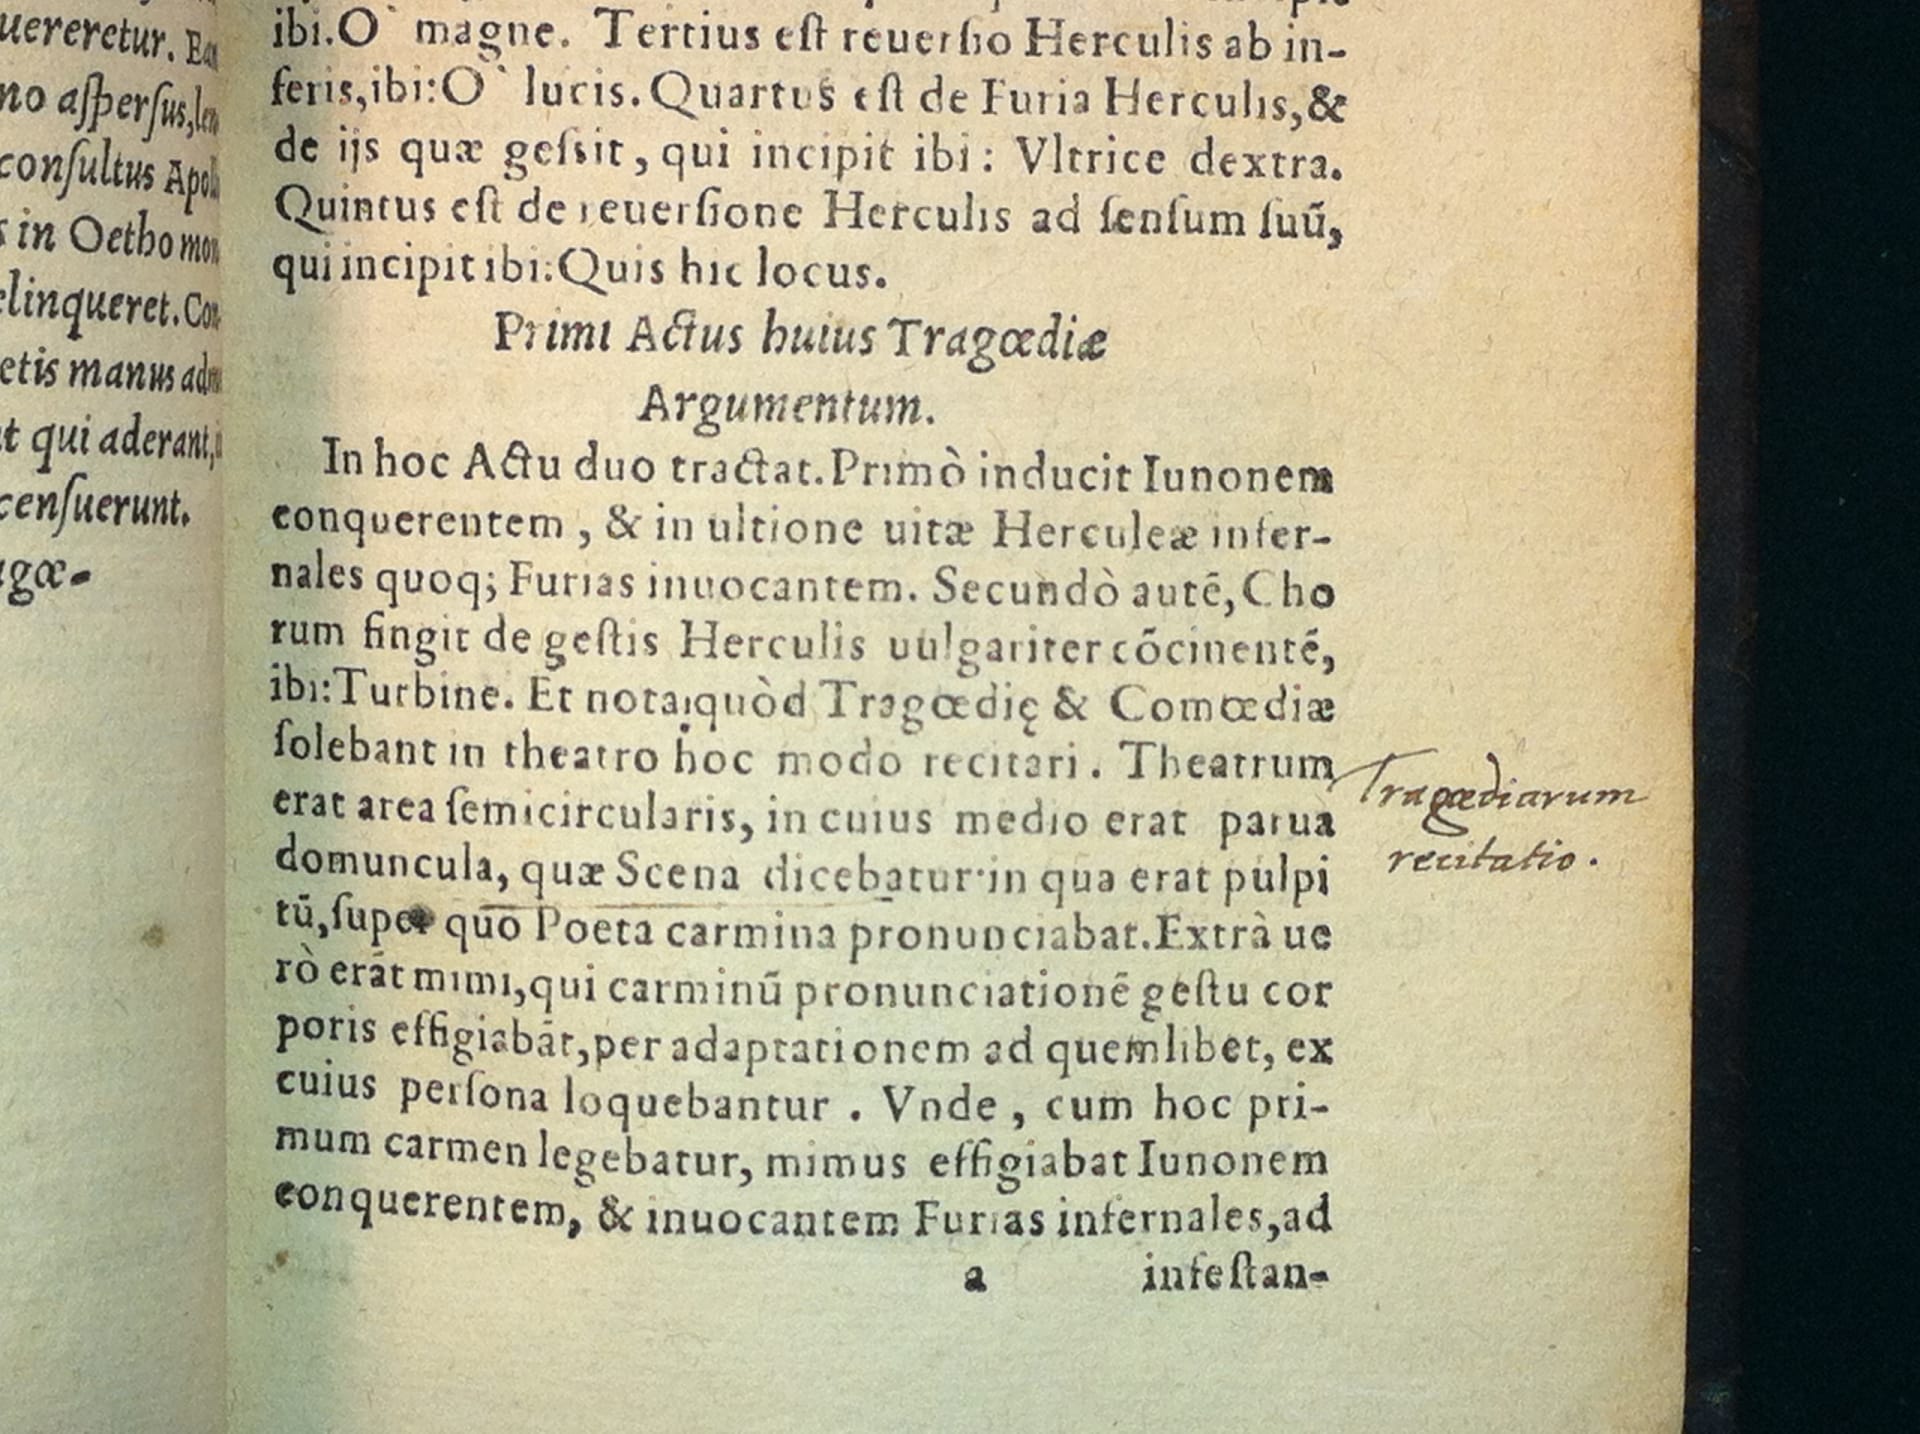 uereretur.
no aſperſus,
conſultus
in Oetho
elinqueret.
etis manus
t qui aderant,
cenſuerunt.
agœ-
ibi.O` magne. Tertius eſt reuerſio Herculis ab in-
feris,ibi:O` lucis. Quartus eſt de Furia Herculis,&
de ijs quæ geſsit, qui incipit ibi: Vltrice dextra.
Quintus eſt de reuerſione Herculis ad ſenſum ſuū,
qui incipit ibi:Quis hic locus.
Primi Actus huius Tragœdiæ
Argumentum.
In hoc Actu duo tractat. Primò inducit Iunonem
conquerentem, & in ultione uitæ Herculeæ infer-
nales quoq; Furias inuocantem. Secundò autē, Cho
rum fingit de geſtis Herculis uulgariter cōcinentē,
ibi:Turbine. Et nota,quòd Tragœdię & Comœdiæ
ſolebant in theatro hoc modo recitari. Theatrum
erat area ſemicircularis, in cuius medio erat parua
domuncula, quæ Scena dicebatur·in qua erat pulpi
tū,ſuper quo Poeta carmina pronunciabat.Extrà ue
rò erāt mimi,qui carminū pronunciationē geſtu cor
poris effigiabāt,per adaptationem ad quemlibet, ex
cuius perſona loquebantur. Vnde, cum hoc pri-
mum carmen legebatur, mimus effigiabat Iunonem
conquerentem, & inuocantem Furias infernales,ad
a infeſtan-
Tragœdiarum
recitatio.